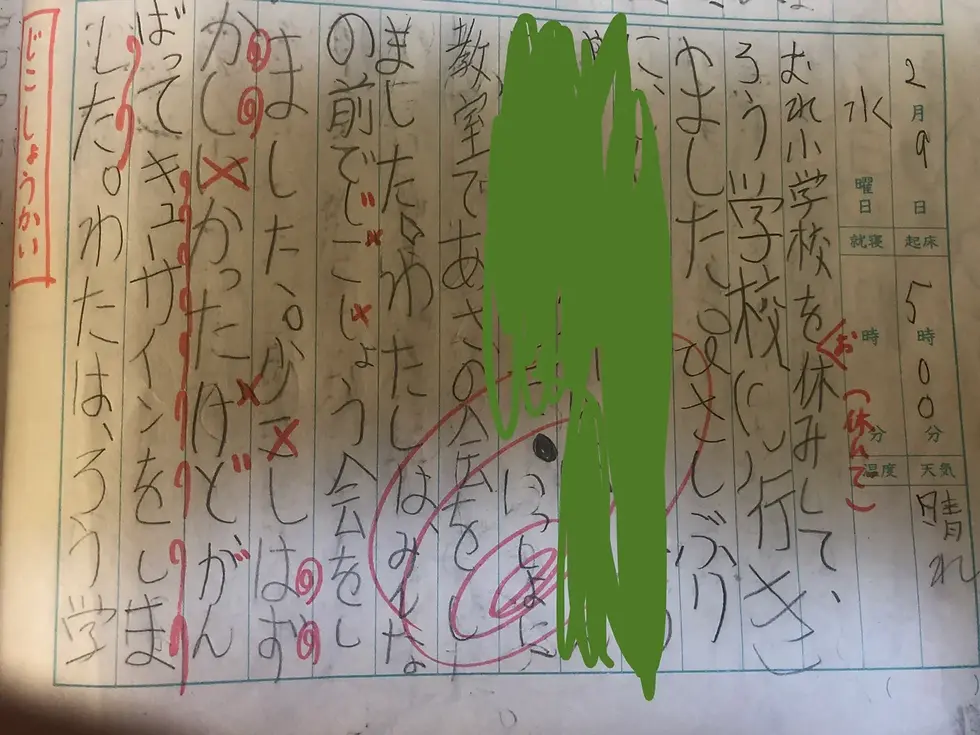 2月9日
起床 5時00分
天気 晴れ
水曜日
就寝 時 分
温度
むれ小学校を休みして、
お(休んで)
ろう学校に行き
ました。ひさしぶり
に、
いっしょに
教室であさの会をし
ました。わたしは、みんな
の前でじこじょう会をし
はました。少こしはず
かしいかったけどがん
ばってキュサインをしま
した。わたは、ろう学
じこしょうかい